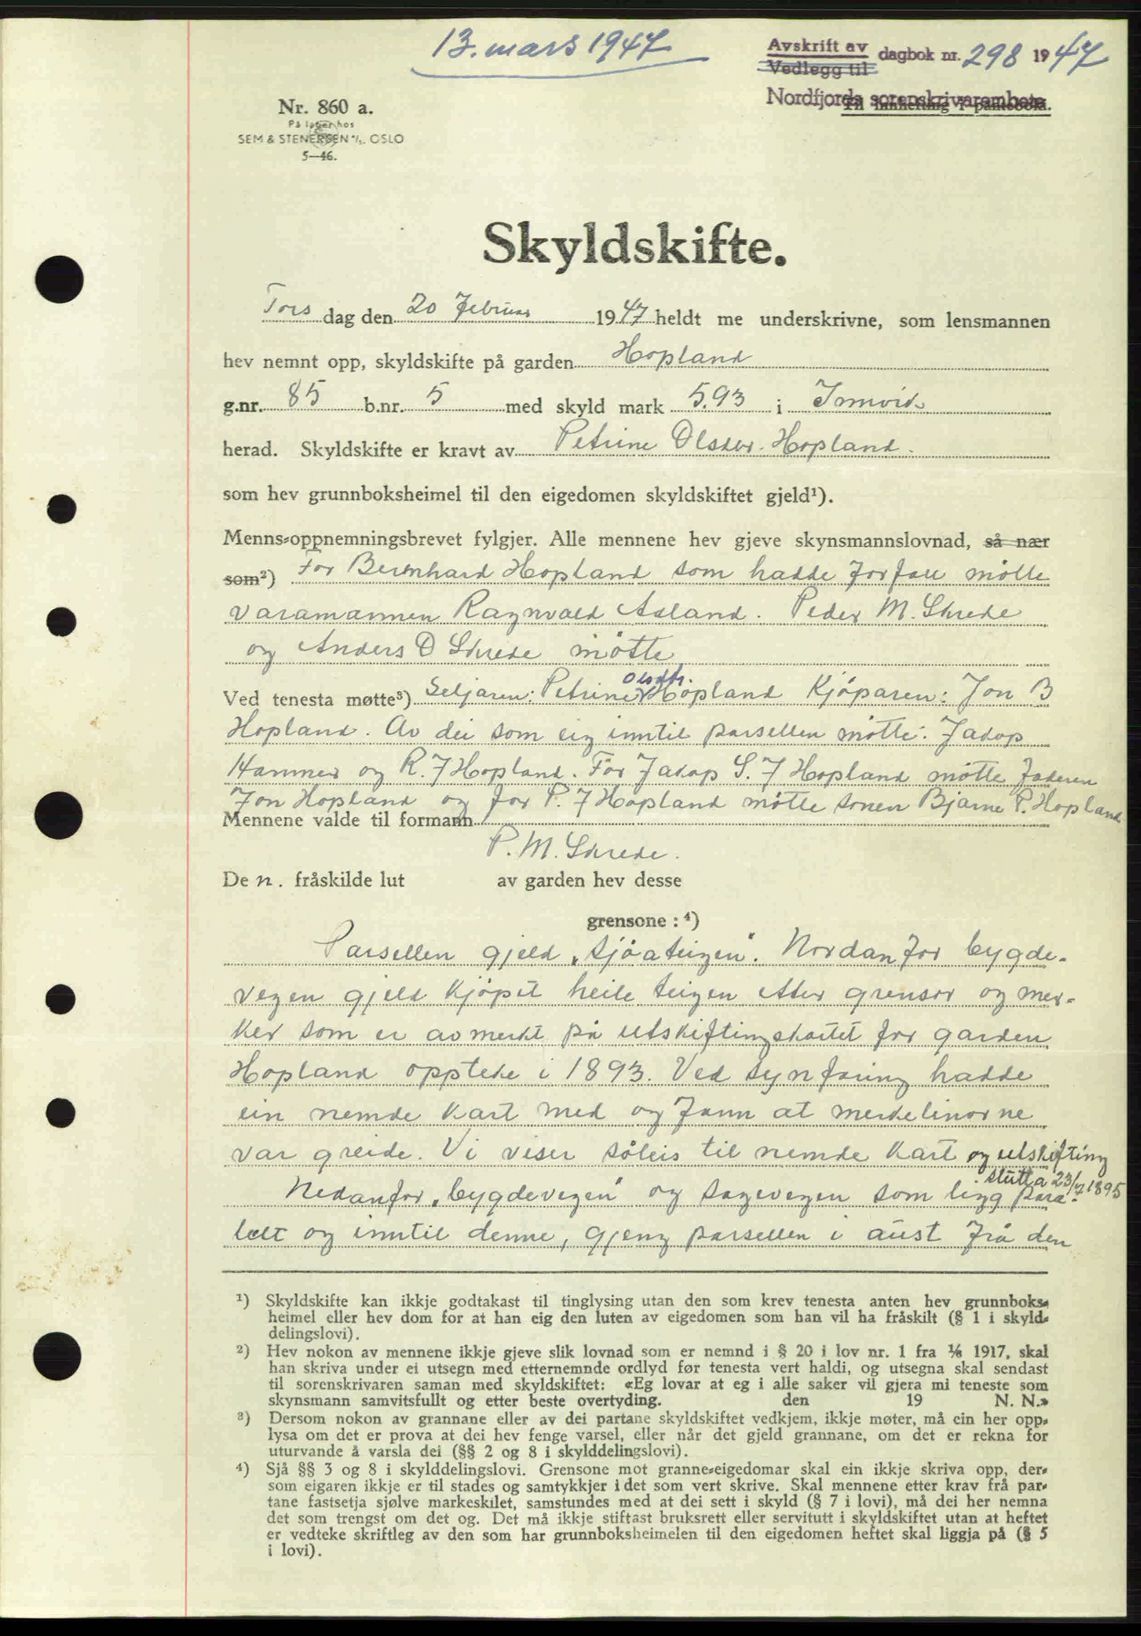 13. mars 1947
Avskrift av dagbok nr. 298 1947
Vedlegg til
Nordfjords sorenskrivarembete
Til innhefting i panteboka.
Nr. 860 a.
På lager hos
SEM & STENERSEN A/S. OSLO
5—46.
Skyldskifte.
Tors dag den 20 februar 1947 heldt me underskrivne, som lensmannen
hev nemnt opp, skyldskifte på garden Hopland
g.nr. 85 b.nr. 5 med skyld mark 5,93 i Innvik
herad. Skyldskifte er kravt av Petrine Olsdtr. Hopland.
som hev grunnboksheimel til den eigedomen skyldskiftet gjeld¹).
Menns-oppnemningsbrevet fylgjer. Alle mennene hev gjeve skynsmannslovnad, så nær
som²) For Bernhard Hopland som hadde forfall møtte
varamannen Ragnvald Aaland. Peder M. Skrede
og Anders D Skrede møtte
Ved tenesta møtte³) Seljaren: Petrine Olsdtr. Hopland Kjöparen: Jon B
Hopland. Av dei som eig inntil parsellen møtte: Jakop
Hammer og R. J Hopland. For Jakop S. J Hopland møtte faderen
Jon Hopland og for P. J Hopland møtte sonen Bjarne P. Hopland
Mennene valde til formann
P. M. Skrede.
De n. fråskilde lut av garden hev desse
grensone : ⁴)
Parsellen gjeld „Sjöateigen". Nordanfor bygde-
vegen gjeld kjöpet heile teigen etter grensor og mer-
ker som er avmerkt på utskiftingskartet for garden
Hopland oppteke i 1893. Ved synfaring hadde
ein nemde kart med og fann at merkelinorne
var greide. Vi viser såleis til nemde kart og utskifting
slutta 23/7 1895.
Nedanfor „bygdevegen" og sagevegen som ligg para-
lelt og inntil denne, gjeng parsellen i aust frå den
¹) Skyldskifte kan ikkje godtakast til tinglysing utan den som krev tenesta anten hev grunnboks-
heimel eller hev dom for at han eig den luten av eigedomen som han vil ha fråskilt (§ 1 i skyld-
delingslovi).
²) Hev nokon av mennene ikkje gjeve slik lovnad som er nemnd i § 20 i lov nr. 1 fra ⅛ 1917, skal
han skriva under ei utsegn med etternemnde ordlyd før tenesta vert haldi, og utsegna skal sendast
til sorenskrivaren saman med skyldskiftet: «Eg lovar at eg i alle saker vil gjera mi teneste som
skynsmann samvitsfullt og etter beste overtyding. den 19 N. N.»
³) Dersom nokon av grannane eller av dei partane skyldskiftet vedkjem, ikkje møter, må ein her opp-
lysa om det er prova at dei hev fenge varsel, eller når det gjeld grannane, om det er rekna for
uturvande å varsla dei (§§ 2 og 8 i skylddelingslovi).
⁴) Sjå §§ 3 og 8 i skylddelingslovi. Grensone mot granne-eigedomar skal ein ikkje skriva opp, der-
som eigaren ikkje er til stades og samtykkjer i det som vert skrive. Skal mennene etter krav frå par-
tane fastsetja sjølve markeskilet, samstundes med at dei sett i skyld (§ 7 i lovi), må dei her nemna
det som trengst om det og. Det må ikkje stiftast bruksrett eller servitutt i skyldskiftet utan at heftet
er vedteke skriftleg av den som har grunnboksheimelen til den eigedomen heftet skal liggja på (§ 5
i lovi).